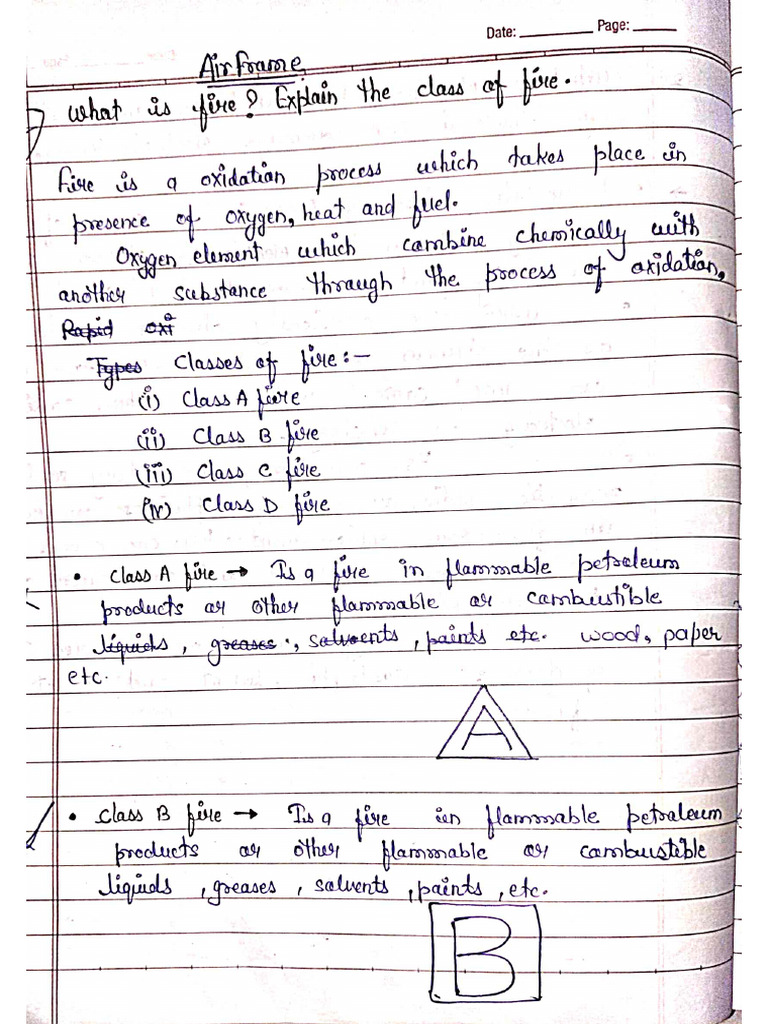 Date: Page:
Airframe
What is fire? Explain the class of fire.
Fire is a oxidation process which takes place in
presence of oxygen, heat and fuel.
Oxygen element which combine chemically with
another substance through the process of oxidation,
Rapid oxi
Types Classes of fire:-
(i) Class A fire
(ii) Class B fire
(iii) Class C fire
(iv) Class D fire
• Class A fire → Is a fire in flammable petroleum
products or other flammable or combuistible
liquids, greases, solvents, paints etc. wood, paper
etc.
A
• Class B fire → Is a fire in flammable petroleum
products or other flammable or combustible
liquids, greases, solvents, paints, etc.
B